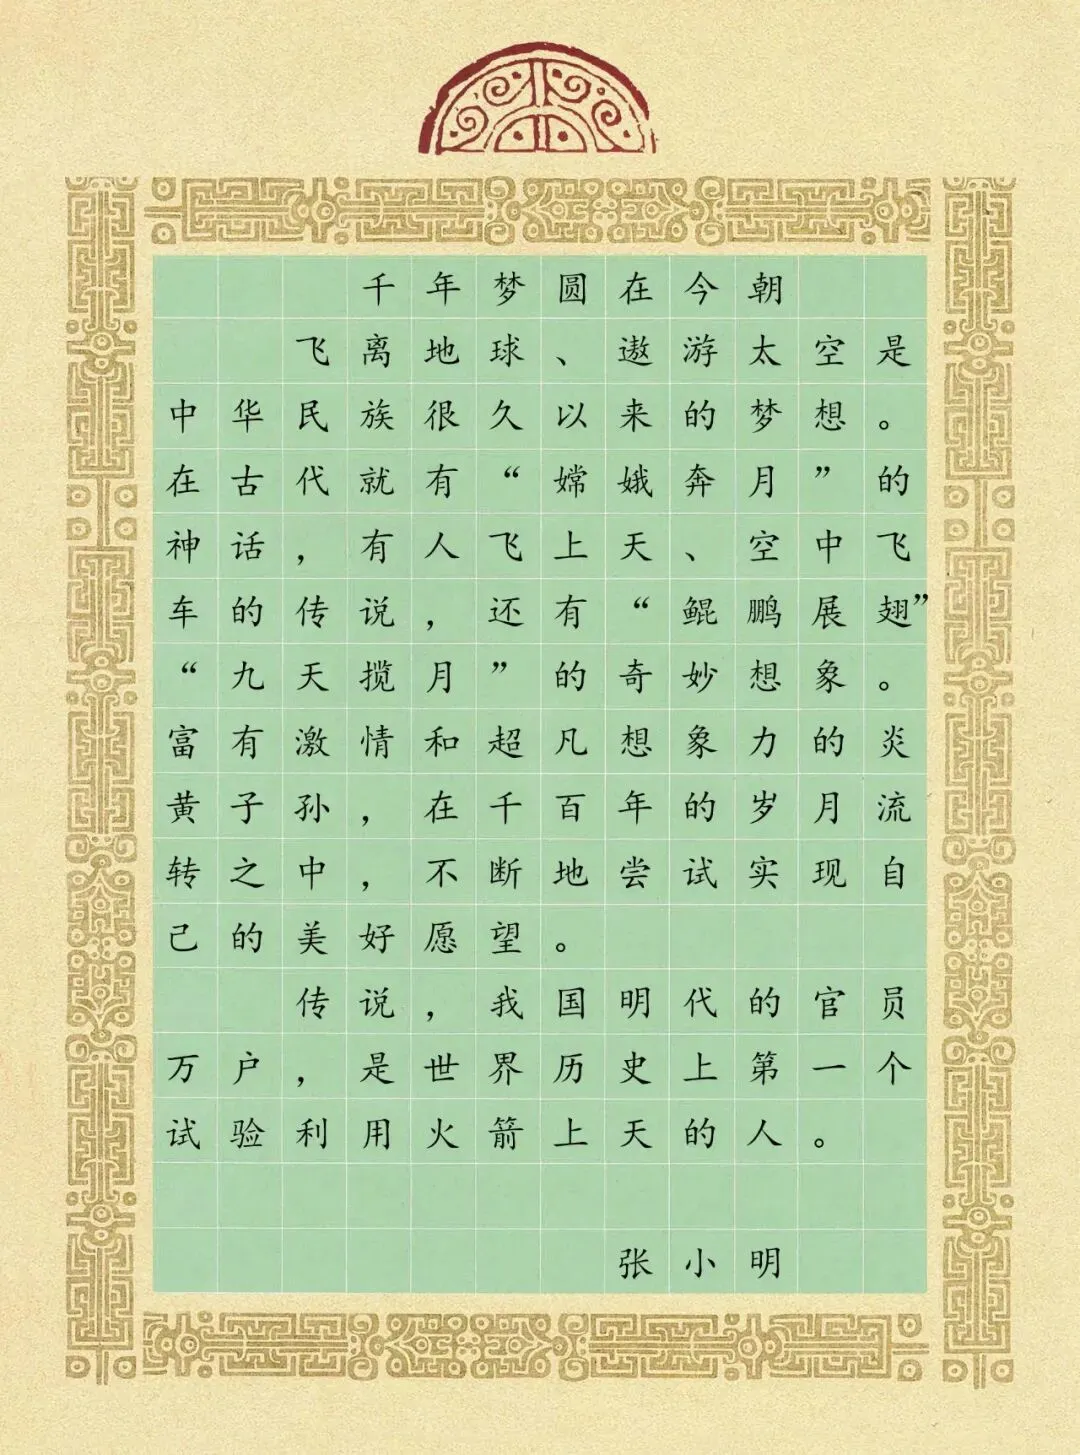 千年梦圆在今朝
飞离地球、遨游太空是
中华民族很久以来的梦想。
在古代就有“嫦娥奔月”的
神话，有人飞上天、空中飞
车的传说，还有“鲲鹏展翅”
“九天揽月”的奇妙想象。
富有激情和超凡想象力的炎
黄子孙，在千百年的岁月流
转之中，不断地尝试实现自
己的美好愿望。
传说，我国明代的官员
万户，是世界历史上第一个
试验利用火箭上天的人。
张小明